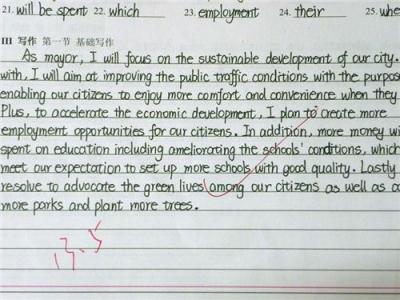 21. will be spent 22. which 23. employment 24. their 25. whe
III 写作 第一节 基础写作
As mayor, I will focus on the sustainable development of our city.
with, I will aim at improving the public traffic conditions with the purpose
enabling our citizens to enjoy more comfort and convenience when they
Plus, to accelerate the economic development, I plan to create more
employment opportunities for our citizens. In addition, more money wi
spent on education including ameliorating the schools' conditions, which
meet our expectation to set up more schools with good quality. Lastly
resolve to advocate the green lives among our citizens as well as co
more parks and plant more trees.
13.5